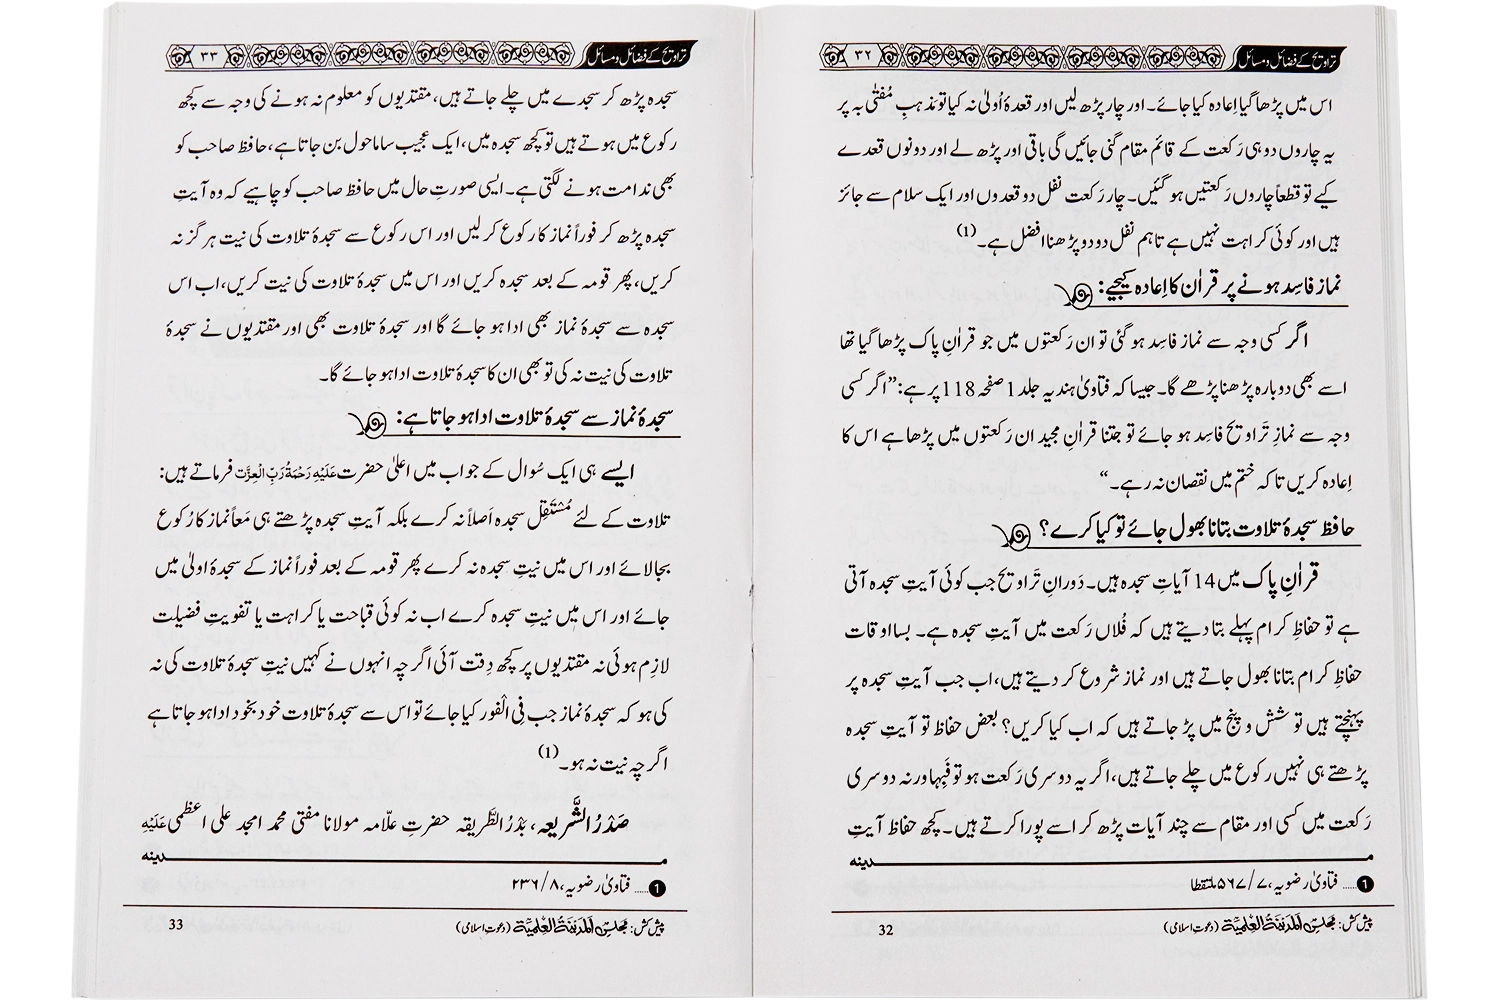 تراویح کے فضائل و مسائل
۳۲
اس میں پڑھا گیا اِعادہ کیا جائے۔ اور چار پڑھ لیں اور قعدۂ اُولیٰ نہ کیا تو مذہبِ مُفتٰی بہ پر
یہ چاروں دو ہی رَکعت کے قائم مقام گنی جائیں گی باقی اور پڑھ لے اور دونوں قعدے
کیے تو قطعاً چاروں رَکعتیں ہو گئیں۔ چار رَکعت نفل دو قعدوں اور ایک سلام سے جائز
ہیں اور کوئی کراہت نہیں ہے تاہم نفل دو دو پڑھنا افضل ہے۔ (1)
نماز فاسِد ہونے پر قراٰن کا اِعادہ کیجیے:
اگر کسی وجہ سے نماز فاسِد ہو گئی تو ان رَکعتوں میں جو قراٰنِ پاک پڑھا گیا تھا
اسے بھی دوبارہ پڑھنا پڑھے گا۔ جیسا کہ فتاویٰ ہندیہ جلد 1 صفحہ 118 پر ہے: ”اگر کسی
وجہ سے نمازِ تَراویح فاسِد ہو جائے تو جتنا قراٰنِ مجید ان رَکعتوں میں پڑھا ہے اس کا
اِعادہ کریں تاکہ ختم میں نقصان نہ رہے۔“
حافظ سجدۂ تلاوت بتانا بھول جائے تو کیا کرے؟
قراٰنِ پاک میں 14 آیاتِ سجدہ ہیں۔ دَورانِ تَراویح جب کوئی آیتِ سجدہ آتی
ہے تو حفاظِ کرام پہلے بتا دیتے ہیں کہ فُلاں رَکعت میں آیتِ سجدہ ہے۔ بسا اوقات
حفاظِ کرام بتانا بھول جاتے ہیں اور نماز شروع کر دیتے ہیں، اب جب آیتِ سجدہ پر
پہنچتے ہیں تو شش و پنج میں پڑ جاتے ہیں کہ اب کیا کریں؟ بعض حفاظ تو آیتِ سجدہ
پڑھتے ہی نہیں رکوع میں چلے جاتے ہیں، اگر یہ دوسری رَکعت ہو تو فَبِہا ورنہ دوسری
رَکعت میں کسی اور مقام سے چند آیات پڑھ کر اسے پورا کرتے ہیں۔ کچھ حفاظ آیتِ
مدینہ
1 ..... فتاویٰ رضویہ، ۷/ ۵۶۷ ملتقطا
پیش کش: مجلس المدینۃ العلمیۃ (دعوتِ اسلامی)
32
تراویح کے فضائل و مسائل
۳۳
سجدہ پڑھ کر سجدے میں چلے جاتے ہیں، مقتدیوں کو معلوم نہ ہونے کی وجہ سے کچھ
رکوع میں ہوتے ہیں تو کچھ سجدہ میں، ایک عجیب سا ماحول بن جاتا ہے، حافظ صاحب کو
بھی ندامت ہونے لگتی ہے۔ ایسی صورتِ حال میں حافظ صاحب کو چاہیے کہ وہ آیتِ
سجدہ پڑھ کر فوراً نماز کا رکوع کر لیں اور اس رکوع سے سجدۂ تلاوت کی نیت ہرگز نہ
کریں، پھر قومہ کے بعد سجدہ کریں اور اس میں سجدۂ تلاوت کی نیت کریں، اب اس
سجدہ سے سجدۂ نماز بھی ادا ہو جائے گا اور سجدۂ تلاوت بھی اور مقتدیوں نے سجدۂ
تلاوت کی نیت نہ کی تو بھی ان کا سجدۂ تلاوت ادا ہو جائے گا۔
سجدۂ نماز سے سجدۂ تلاوت ادا ہو جاتا ہے:
ایسے ہی ایک سُوال کے جواب میں اعلیٰ حضرت عَلَیْہِ رَحْمَۃُ رَبِّ الْعِزَّت فرماتے ہیں:
تلاوت کے لئے مُسْتَقِل سجدہ اَصلاً نہ کرے بلکہ آیتِ سجدہ پڑھتے ہی مَعاً نماز کا رُکوع
بجا لائے اور اس میں نیتِ سجدہ نہ کرے پھر قومہ کے بعد فوراً نماز کے سجدۂ اولیٰ میں
جائے اور اس میں نیتِ سجدہ کرے اب نہ کوئی قباحت یا کراہت یا تفویتِ فضیلت
لازِم ہوئی نہ مقتدیوں پر کچھ دِقت آئی اگرچہ انہوں نے کہیں نیتِ سجدۂ تلاوت کی نہ
کی ہو کہ سجدۂ نماز جب فِی الْفَور کیا جائے تو اس سے سجدۂ تلاوت خود بخود ادا ہو جاتا ہے
اگرچہ نیت نہ ہو۔ (1)
صَدْرُ الشَّریعہ، بَدْرُ الطَّریقہ حضرتِ علّامہ مولانا مفتی محمد امجد علی اعظمی عَلَیْہِ
مدینہ
1 ..... فتاویٰ رضویہ، ۸/ ۲۳۶
پیش کش: مجلس المدینۃ العلمیۃ (دعوتِ اسلامی)
33